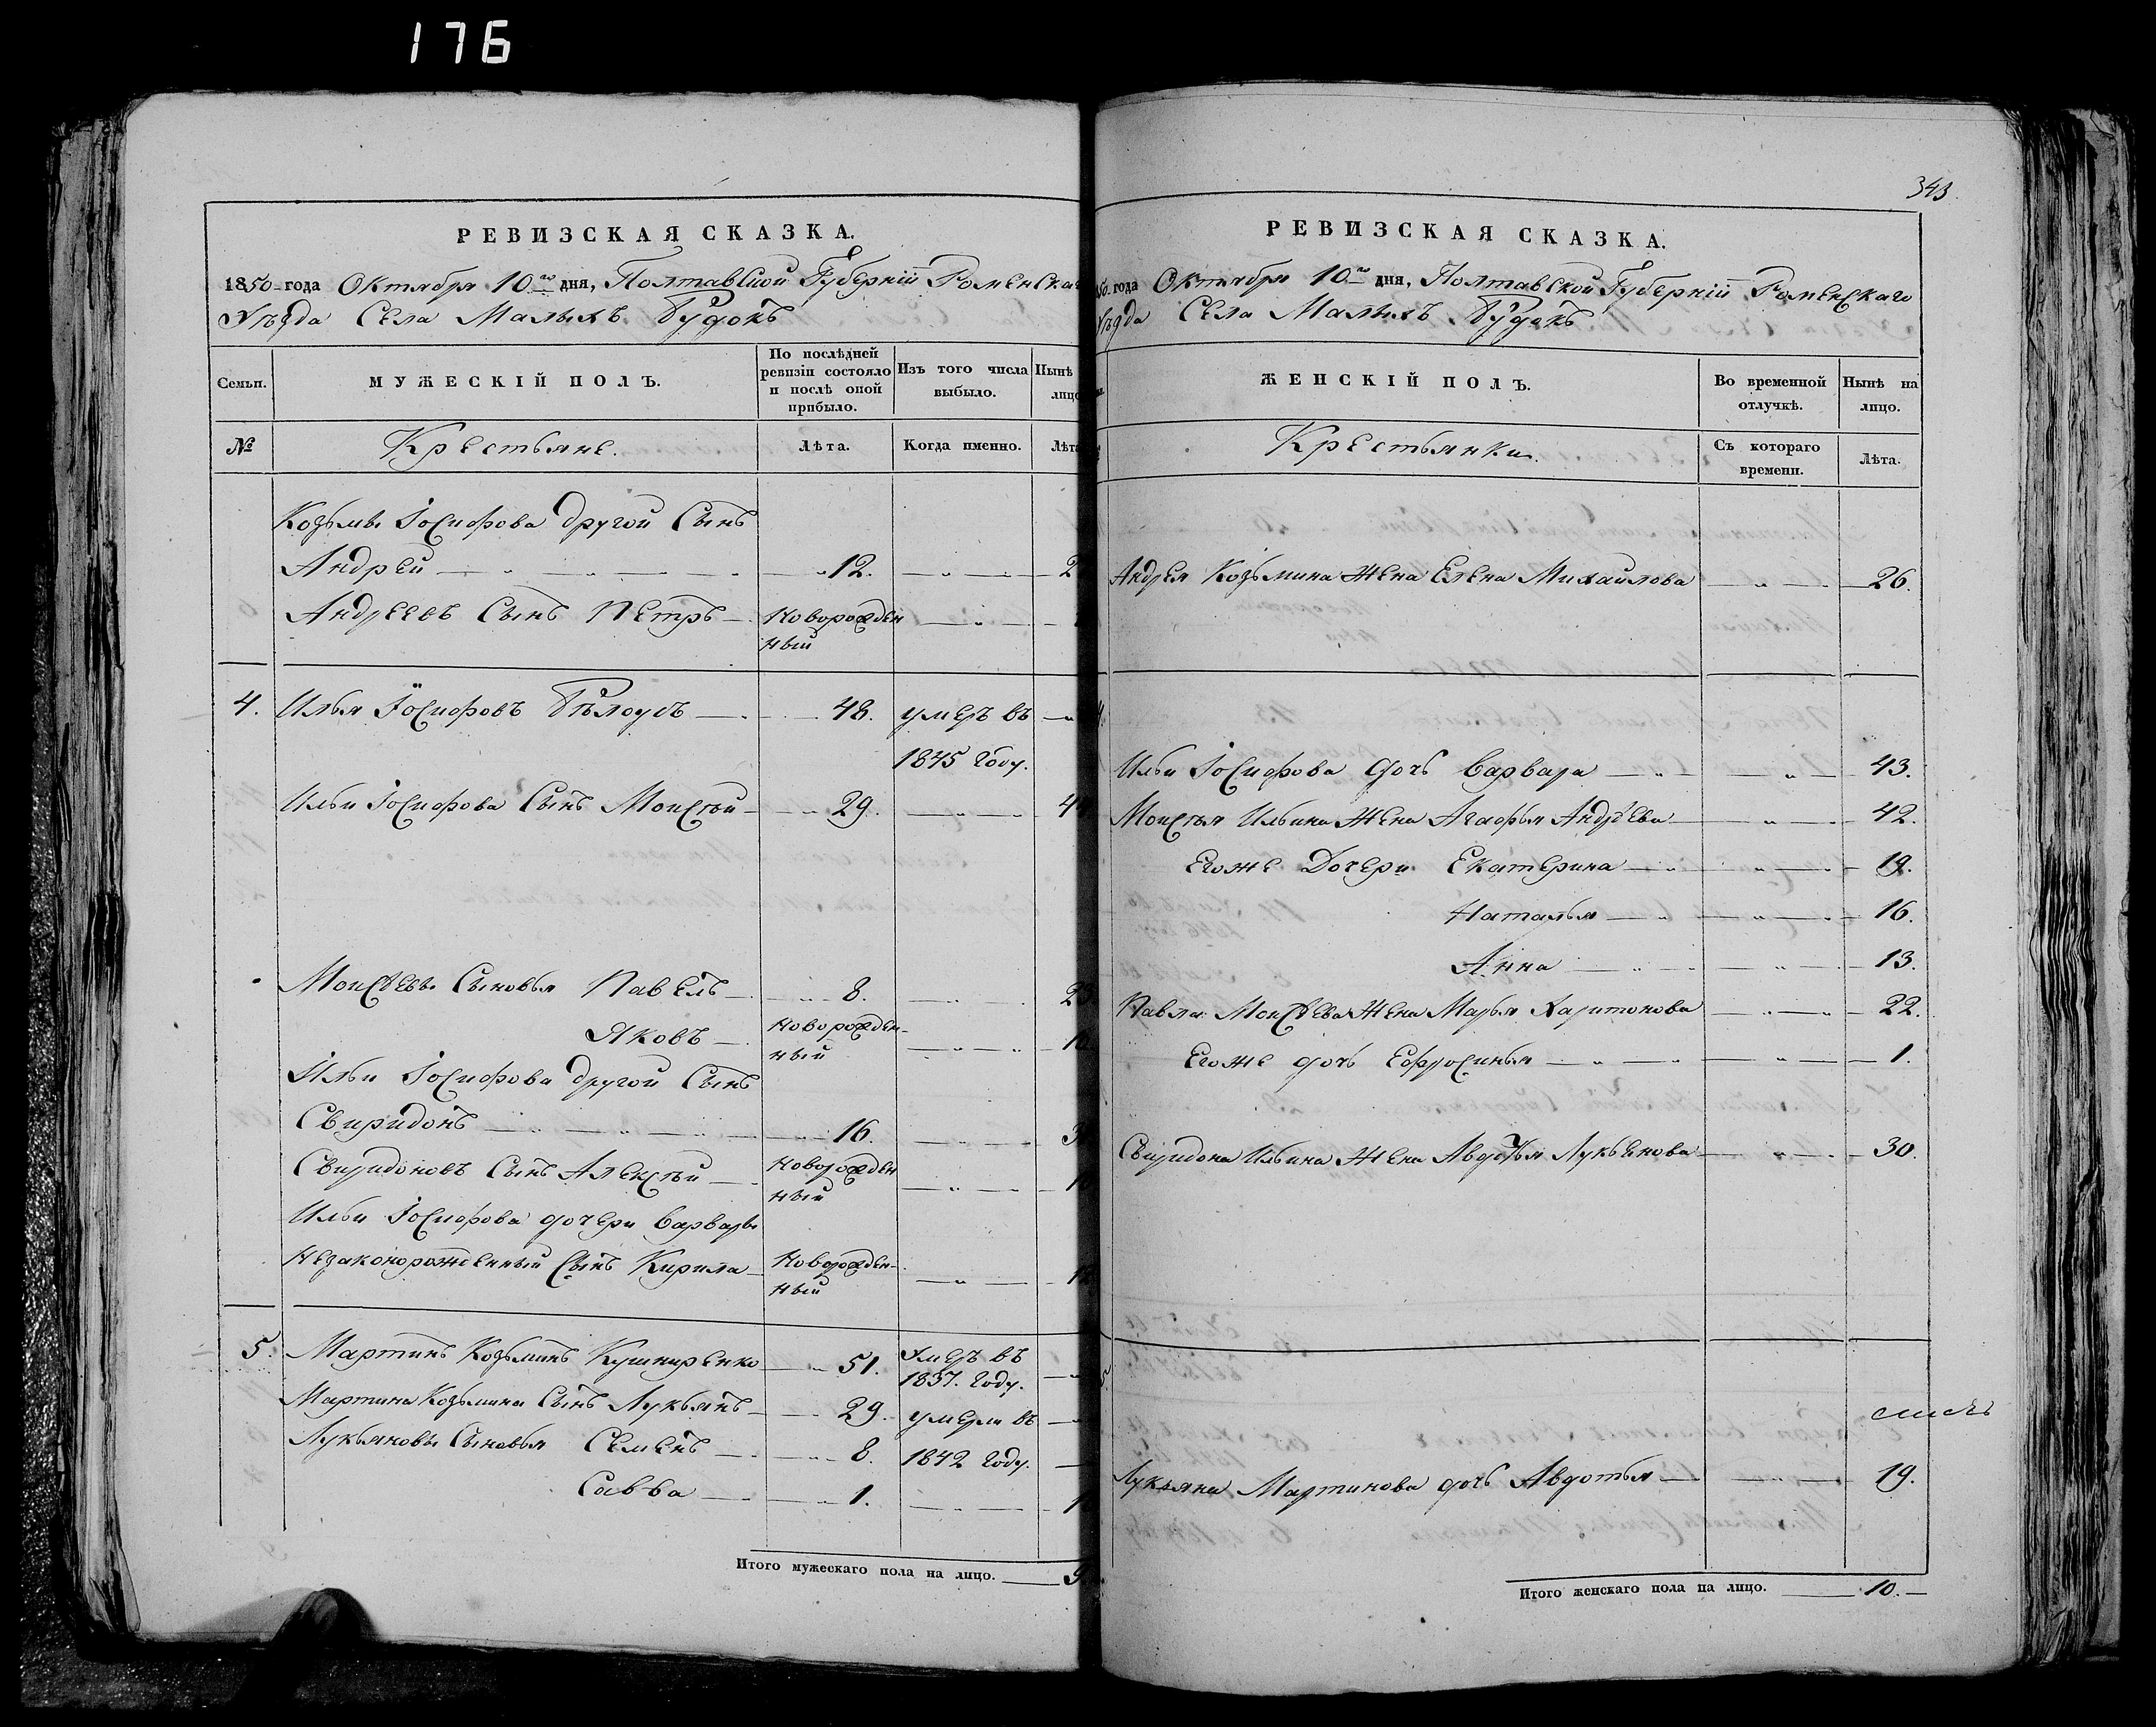 176
РЕВИЗСКАЯ СКАЗКА.
1850 года Октября 10го дня, Полтавской Губернии Роменска
Уѣзда Села Малыхъ Будокъ
Семьи.
МУЖЕСКІЙ ПОЛЪ.
По послѣдней
ревизіи состояло
и послѣ оной
прибыло.
Изъ того числа
выбыло.
Нынѣ
лицо
№
Крестьяне.
Лѣта.
Когда именно.
Лѣта
Козьмы Іосифова другой Сынъ
Андрей 12.
Андреевъ Сынъ Петръ Новорожден
ный
4. Илья Іосифовъ Бѣлоусъ 48. умеръ въ
1845 году.
Ильи Іосифова Сынъ Моисѣй 29.
Моисѣевы Сыновья Павелъ 8.
Яковъ Новорожден-
ный
Ильи Іосифова другой Сынъ
Свиридонъ 16.
Свиридоновъ Сынъ Алексѣй Новорожден
ный
Ильи Іосифова дочери Варвары
Незаконорожденный Сынъ Кирила Новорожден-
ный
5. Мартинъ Козьминъ Кушниренко 51. Умеръ въ
1837. году.
Мартина Козьмина Сынъ Лукьянъ 29. умерли въ
Лукьяновы Сыновья Семенъ 8. 1842 году.
Савва 1.
Итого мужескаго пола на лицо. 9
343
РЕВИЗСКАЯ СКАЗКА.
50. года Октября 10го дня, Полтавской Губерніи Роменскаго
Уѣзда Села Малыхъ Будокъ
ЖЕНСКІЙ ПОЛЪ.
Во временной
отлучкѣ.
Нынѣ на
лицо.
Крестьянки.
Съ котораго
времени.
Лѣта.
Андрея Козьмина Жена Елена Михайлова 26.
Ильи Іосифова дочь Варвара 43.
Моисѣя Ильина Жена Агафья Андрѣева 42.
Егоже Дочери Екатерина 19.
Наталья 16.
Анна 13.
Павла Моисѣева Жена Марья Харитонова 22.
Егоже дочь Ефросинья 1.
Свиридона Ильина Жена Авдотья Лукьянова 30.
5.
Лукьяна Мартинова дочь Авдотья 19.
Итого женскаго пола на лицо. 10.